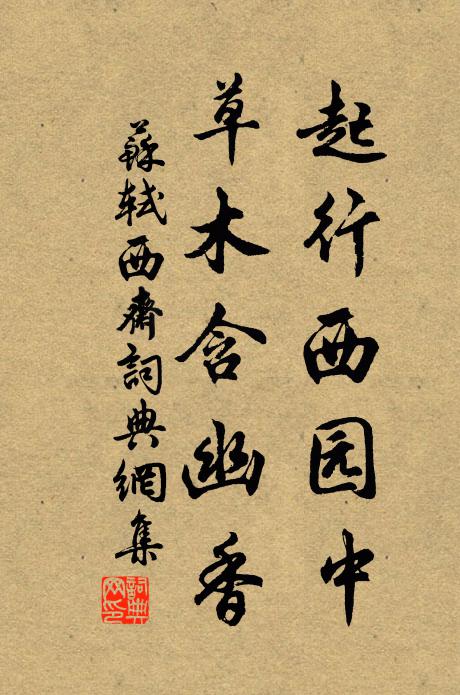 起行西园中
草木含幽香
蘇軾西齋詞典網集
詞典
网印